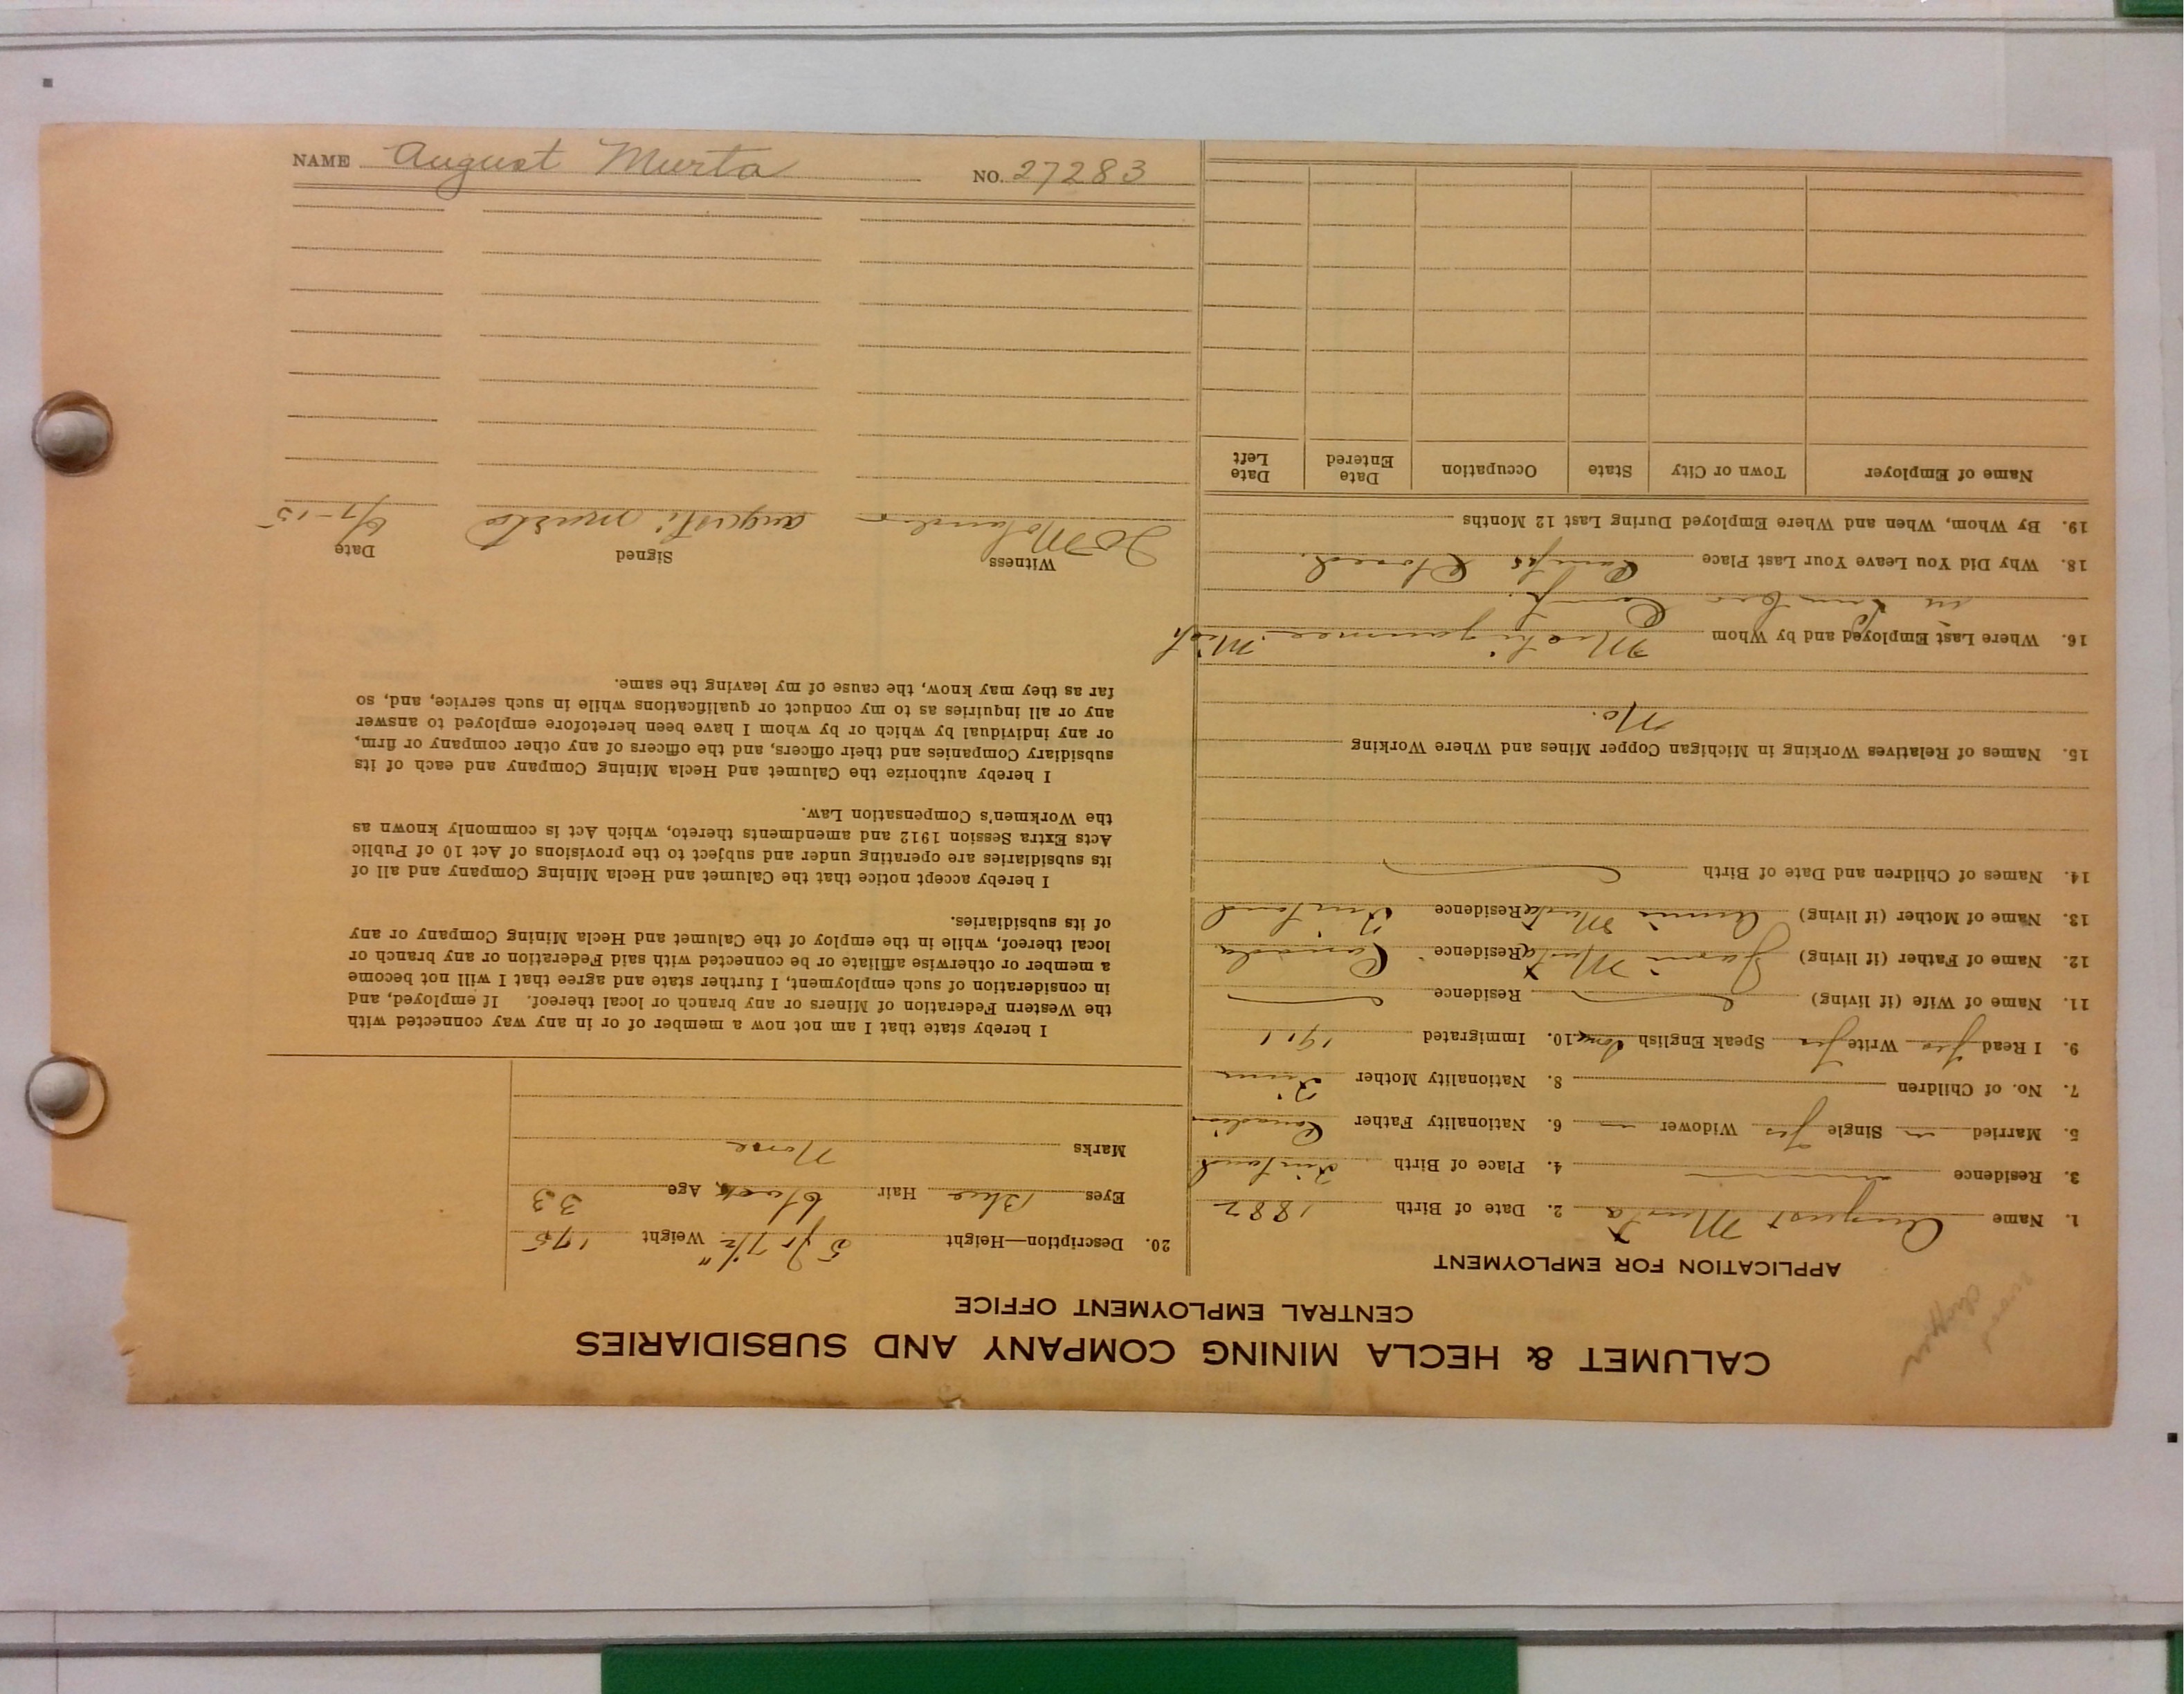 NAME August Murta NO. 27283
CALUMET & HECLA MINING COMPANY AND SUBSIDIARIES
CENTRAL EMPLOYMENT OFFICE
Wood
Chopper
APPLICATION FOR EMPLOYMENT
1. Name August Murta 2. Date of Birth 1882
3. Residence 4. Place of Birth Finland
5. Married Single Yes Widower 6. Nationality Father Canadian
7. No. of Children 8. Nationality Mother Finn
9. I Read Yes Write Yes Speak English 10. Immigrated 1911
11. Name of Wife (if living) Residence
12. Name of Father (if living) Murta Residence Canada
13. Name of Mother (if living) Annie Murta Residence Finland
14. Names of Children and Date of Birth
15. Names of Relatives Working in Michigan Copper Mines and Where Working
No.
16. Where Last Employed and by Whom Michigamme Mich
in Lumber Camp
18. Why Did You Leave Your Last Place Camps Closed.
19. By Whom, When and Where Employed During Last 12 Months
Name of Employer Town or City State Occupation Date Entered Date Left
20. Description—Height 5 ft 7 1/2" Weight 175
Eyes Blue Hair black Age 33
Marks None
I hereby state that I am not now a member of or in any way connected with
the Western Federation of Miners or any branch or local thereof. If employed, and
in consideration of such employment, I further state and agree that I will not become
a member or otherwise affiliate or be connected with said Federation or any branch or
local thereof, while in the employ of the Calumet and Hecla Mining Company or any
of its subsidiaries.
I hereby accept notice that the Calumet and Hecla Mining Company and all of
its subsidiaries are operating under and subject to the provisions of Act 10 of Public
Acts Extra Session 1912 and amendments thereto, which Act is commonly known as
the Workmen's Compensation Law.
I hereby authorize the Calumet and Hecla Mining Company and each of its
subsidiary Companies and their officers, and the officers of any other company or firm,
or any individual by which or by whom I have been heretofore employed to answer
any or all inquiries as to my conduct or qualifications while in such service, and, so
far as they may know, the cause of my leaving the same.
Witness Signed Date
augusti murto 6/7-15